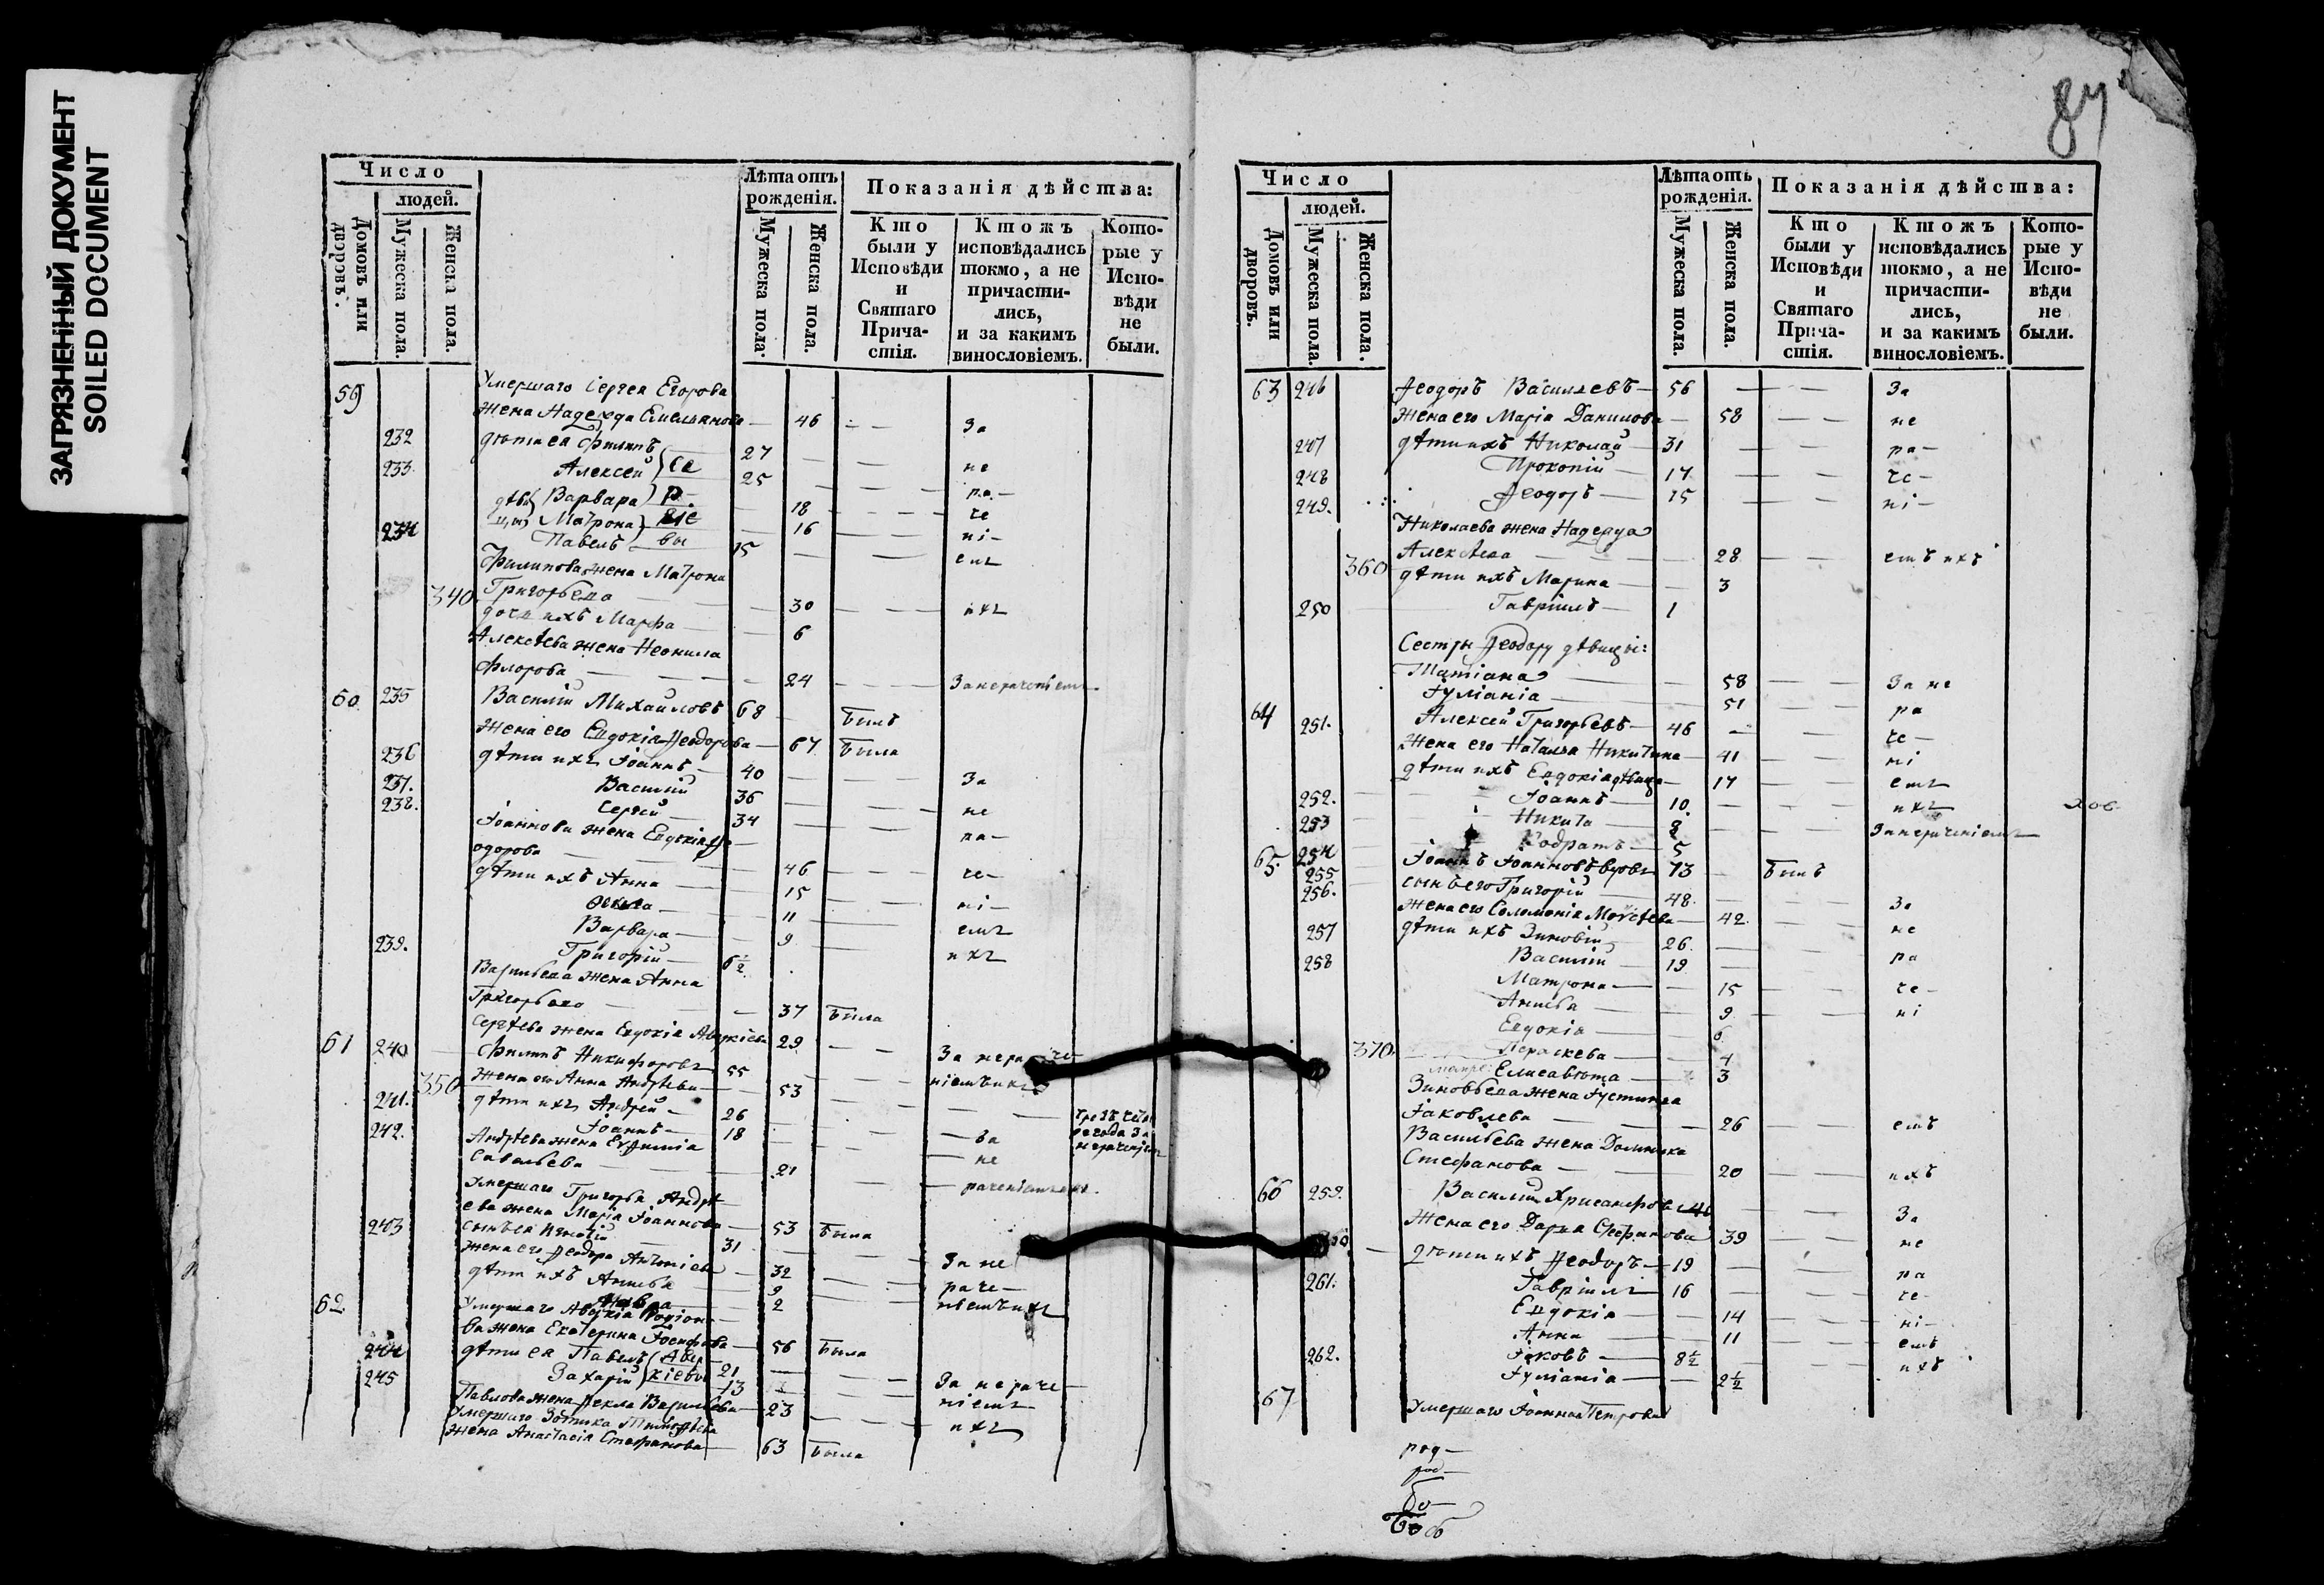 ЗАГРЯЗНЕННЫЙ ДОКУМЕНТ
SOILED DOCUMENT
Число
людей.
Домовъ или дворовъ.
Мужеска пола.
Женска пола.
Лѣта отъ рожденія.
Мужеска пола.
Женска пола.
Показанія дѣйства:
Кто были у Исповѣди и Святаго Причастія.
Ктожъ исповѣдались токмо, а не причастились, и за какимъ винословіемъ.
Которые у Исповѣди не были.
59 Умершаго Сергея Егорова
жена Надежда Емельянова — 46 За
232 дѣти ея Филипъ 27
233 Алексей Се 25 не
Варвара р 18 ра
Матрона 16 че
234 Павелъ вы 15 ні
Филипова жена Матрона емъ
340 Григорьева 30 ихъ
дочь ихъ Марфа 6
Алексѣева жена Неонила
Флорова 24 За нераченіемъ
60 235 Василій Михайловъ 68 былъ
жена его Евдокія Ѳеодорова 67 была
236 дѣти ихъ Іоаннъ 40 За
237. Василій 36 не
238. Сергей 34 ра
Іоаннова жена Евдокія Ѳе
одорова 46 че
дѣти ихъ Анна 15 ні
11 емъ
Варвара 9 ихъ
239. Григорій 6½
Васильева жена Анна
Григорьева 37 была
Сергѣева жена Евдокія Аверкіева 29 За нераче
61 240 Филипъ Никифоровъ 55 ніемъ ихъ
350 жена его Анна Андрѣева 53
241. дѣти ихъ Андрей 26
242. Іоаннъ 18 За
Андрѣева жена Евфимія не
Савельева 21 раченіемъ ихъ
Умершаго Григорья Андрѣ
ева жена Марія Іоаннова 53 была
243 сынъ ея 31
жена его Ѳеодора Антоніева 32 За не
дѣти ихъ Анисья 9 раче
2 ніемъ ихъ
62 Умершаго Аверкія Родіоно
ва жена Екатерина Іосифова 56 была
244 дѣти ея Павелъ Авер 21
245 Захарій кіевы 13 За нераче
Павлова жена Ѳекла Васильева 23 ніемъ
Умершаго Зотика Тимоѳѣева ихъ
жена Анастасія Стефанова 63 была
84
Число
людей.
Домовъ или дворовъ.
Мужеска пола.
Женска пола.
Лѣта отъ рожденія.
Мужеска пола.
Женска пола.
Показанія дѣйства:
Кто были у Исповѣди и Святаго Причастія.
Ктожъ исповѣдались токмо, а не причастились, и за какимъ винословіемъ.
Которые у Исповѣди не были.
63 246 Ѳеодоръ Васильевъ 56 За
жена его Марія Данилова 58 не
247 дѣти ихъ Николай 31 ра
248 Прокопій 17 че
249. Ѳеодоръ 15 ні
Николаева жена Надежда
Алексѣева 28 емъ ихъ
360 дѣти ихъ Марина 3
250 Гавріилъ 1
Сестры Ѳеодору дѣвицы:
Татіана 58 За не
Іуліанія 51 ра
64 251. Алексей Григорьевъ 46 че
жена его Наталья Никитина 41 ні
дѣти ихъ Евдокія дѣвица 17 емъ
252. Іоаннъ 10. ихъ
253 Никита 8 За нераченіемъ
254 Кодратъ 5
65. 255 Іоаннъ Іоанновъ вдовъ 73 былъ
256. сынъ его Григорій 48 За
жена его Соломонія Моисѣева 42 не
257 дѣти ихъ Зиновій 26 ра
258 Василій 19 че
Матрона 15 ні
Анисья 9
Евдокія 6
370 Параскева 4
Елисавета 3
Зиновьева жена Іустинія
Іаковлева 26 емъ
Васильева жена Домника
Стефанова 20 ихъ
66 259. Василій Хрисанфовъ За
жена его Дарья Стефанова 39 не
дѣти ихъ Ѳеодоръ 19 ра
261. Гавріилъ 16 че
Евдокія 14 ні
Анна 11 емъ
262. Іаковъ 8½ ихъ
Іуліанія 2½
67 Умершаго Іоанна Петрова